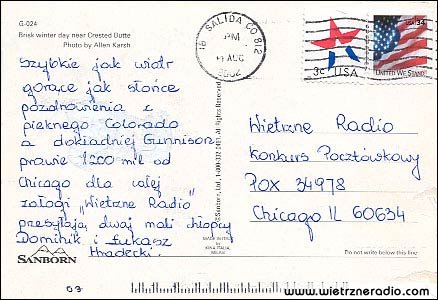 G-024
Brisk winter day near Crested Butte
Photo by Allen Karsh
Szybkie jak wiatr
gorące jak słońce
pozdrowienia z
pięknego Colorado
a dokładniej Gunnison
prawie 1200 mil od
Chicago dla całej
załogi „Wietrzne Radio"
przesyłają dwaj mali chłopcy
Dominik i Łukasz
Hradecki.
SANBORN
SALIDA CO 812
PM
AUG
2002
3c USA
USA 34
UNITED WE STAND
Wietrzne Radio
Konkurs Pocztówkowy
POX 34978
Chicago IL 60634
MADE IN ITALY
KINA ITALIA
MILAN
Do not write below this line
www.wietrzneradio.com